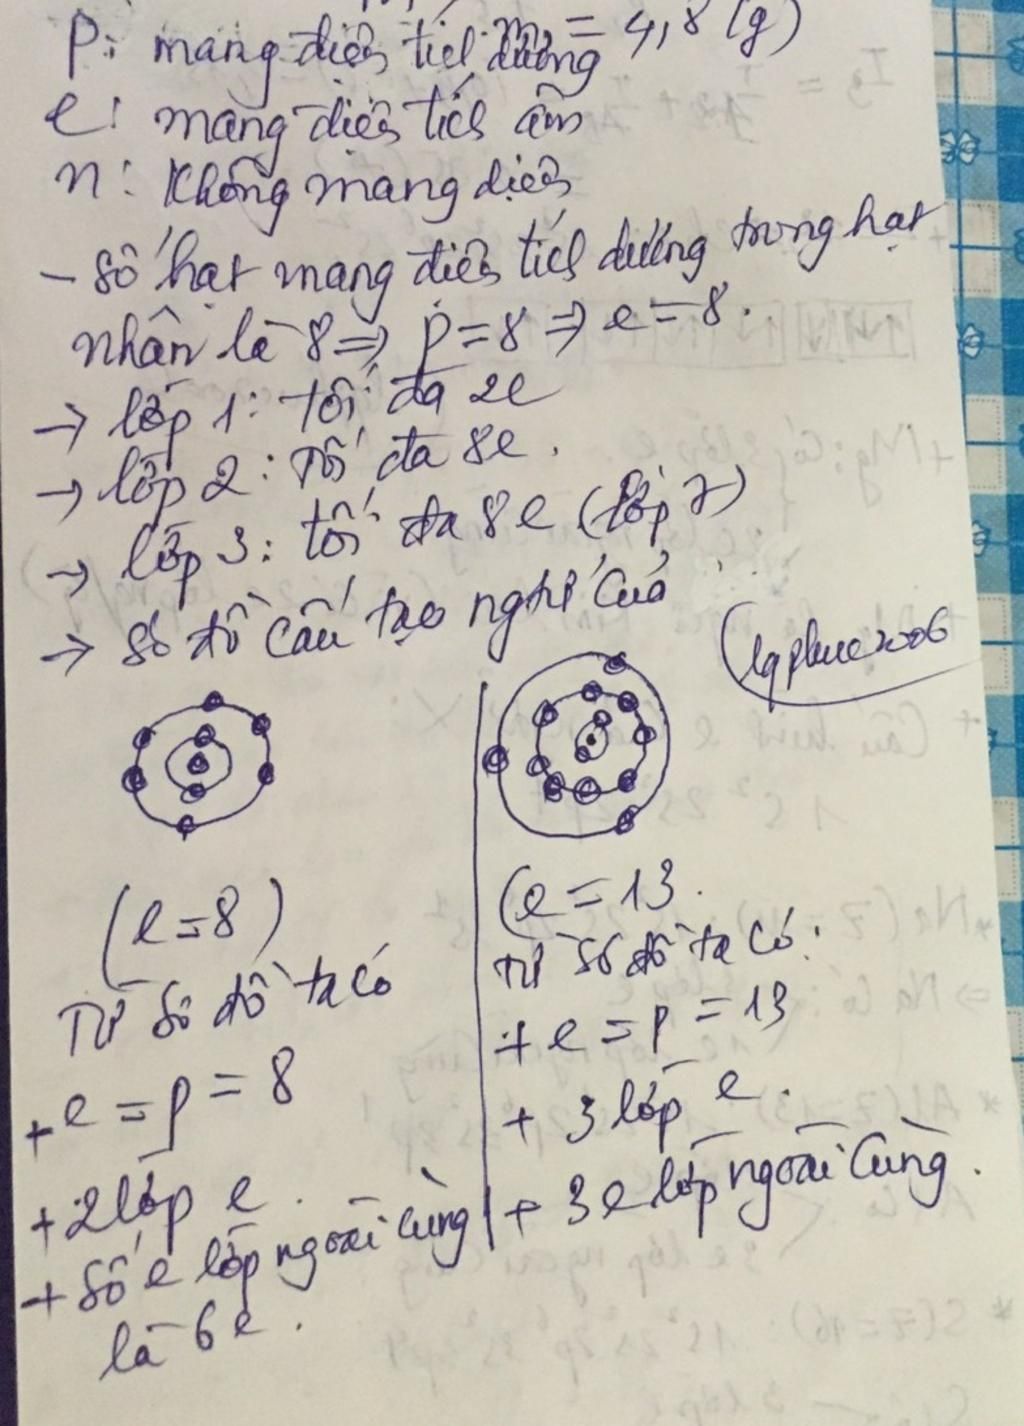 P: mang điện tích dương
m = 4,8 (g)
e: mang điện tích âm
n: Không mang điện
- Số hạt mang điện tích dương trong hạt
nhân là 8 => p = 8 => e = 8.
→ lớp 1: tối đa 2e
→ lớp 2: Tối đa 8e.
→ lớp 3: tối đa 8e (lớp 7)
→ Sơ đồ cấu tạo ngtử của
lqphuc2006
(e = 8)
Từ sơ đồ ta có
+ e = p = 8
+ 2 lớp e.
+ Số e lớp ngoài cùng
là 6e.
(e = 13.
Từ sơ đồ ta có:
+ e = p = 13
+ 3 lớp e.
+ 3e lớp ngoài cùng.